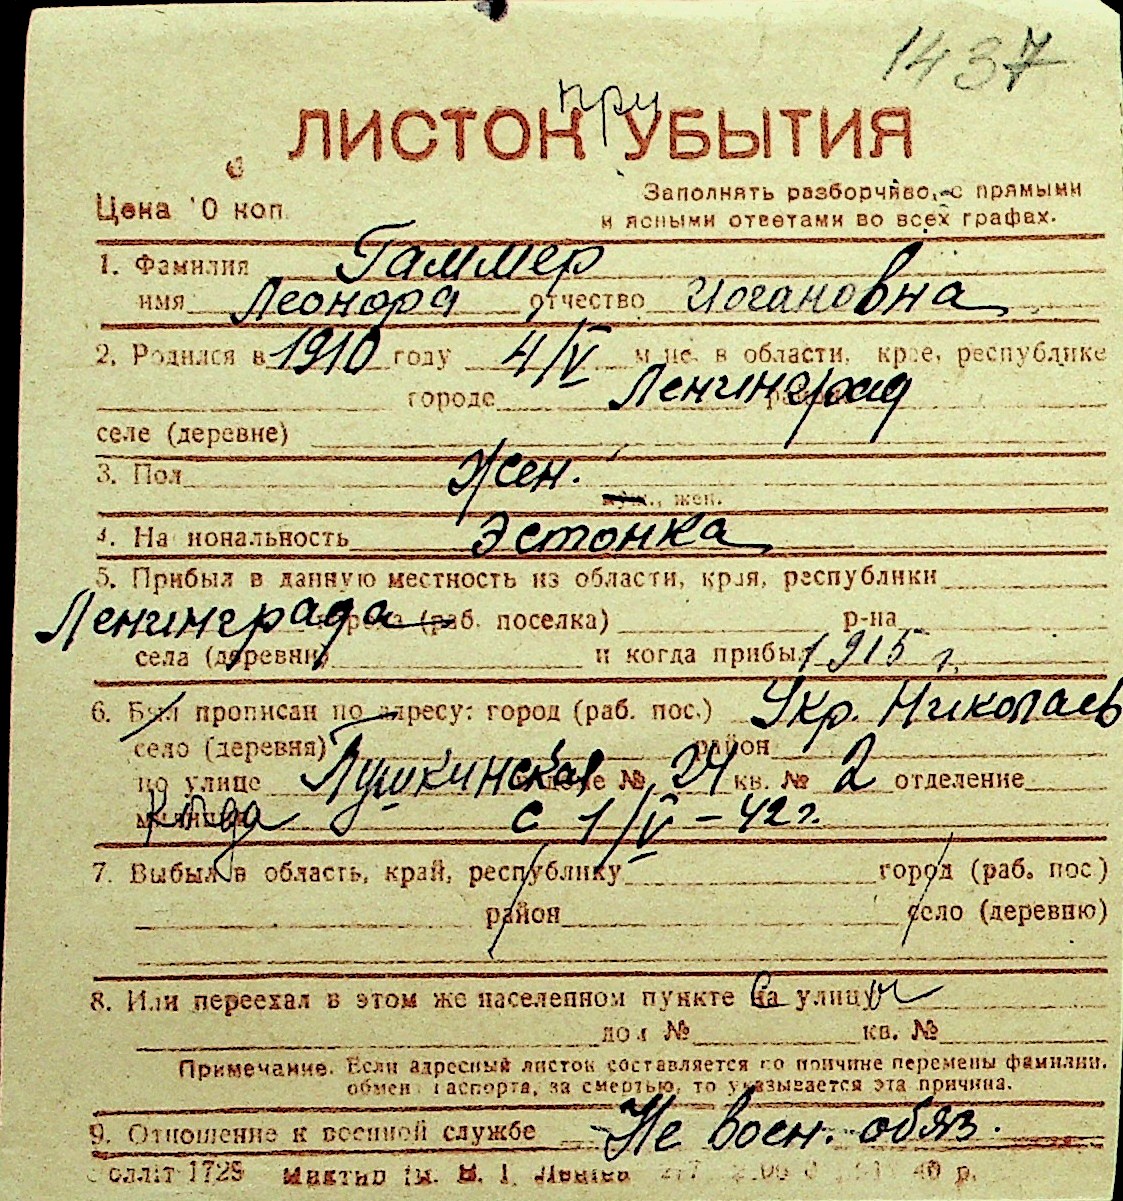 1437
при
ЛИСТОК УБЫТИЯ
Цена 10 коп.
Заполнять разборчиво, с прямыми
и ясными ответами во всех графах.
1. Фамилия Гаммер
имя Леонора отчество Иогановна
2. Родился в 1910 году 4/V м-це. в области, крае, республике
городе Ленинград
селе (деревне)
3. Пол Жен.
муж., жен.
4. Национальность Эстонка
5. Прибыл в данную местность из области, края, республики
Ленинграда города (раб. поселка) р-на
села (деревни) и когда прибыл 1915 г.
6. Был прописан по адресу: город (раб. пос.) Укр. Николаев
село (деревня) район
по улице Пушкинская доме № 24 кв. № 2 отделение
милиции когда с 1/V – 42 г.
7. Выбыл в область, край, республику город (раб. пос)
район село (деревню)
8. Или переехал в этом же населенном пункте на с улицу ы
дом № кв. №
Примечание. Если адресный листок составляется по причине перемены фамилии,
обмена паспорта, за смертью, то указывается эта причина.
9. Отношение к военной службе Не воен. обяз.
1728 40 р.